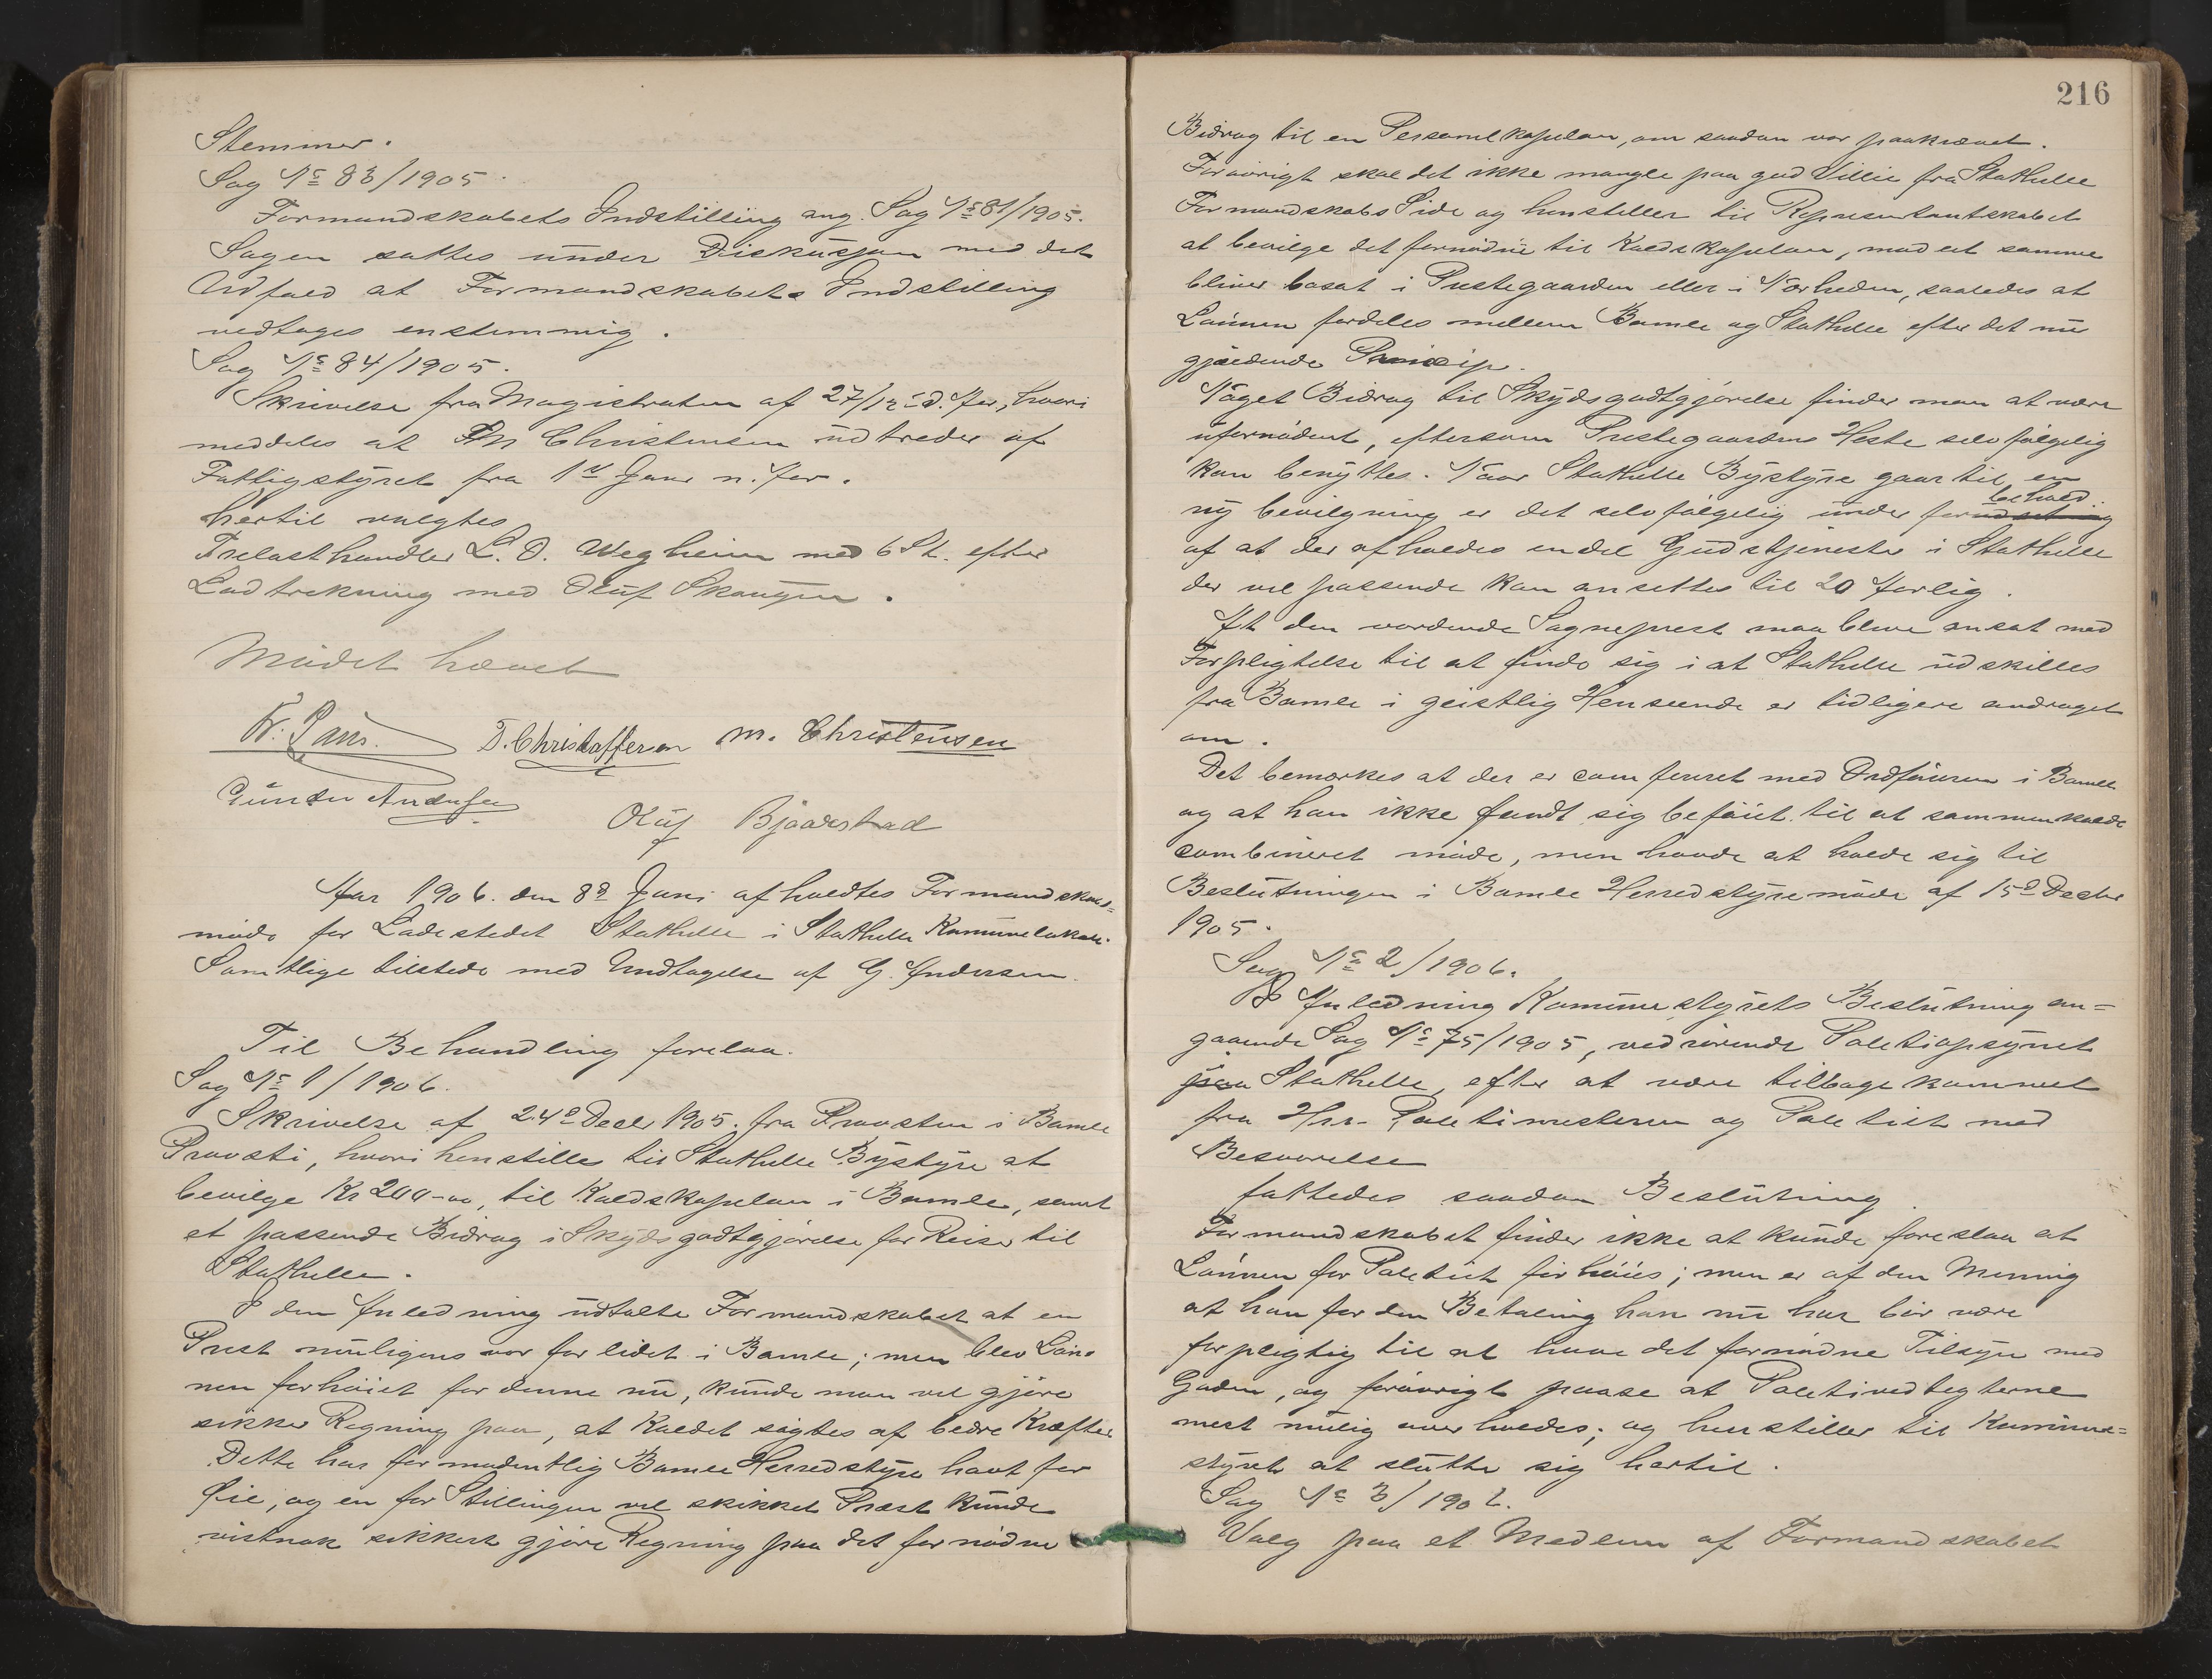 Stemmer.
Sag No 83/1905.
Formandskabets Indstilling ang. Sag No 81/1905.
Sagen sattes under Diskusjon med det
Udfald at Formandskabets Indstilling
vedtages enstemmig.
Sag No 84/1905.
Skrivelse fra Magistraten af 27/12 d. Aar, hvori
meddeles at M Christensen udtræder af
Fattigstyret fra 1ste Januar n. Aar.
hertil valgtes
Trelasthandler L. O. Wegheim med 6 St. efter
Lodtrækning med Oluf Skaugen.
Mødet hævet
Fr. Paus. T. Christoffersen M. Christensen
Gunder Andersen
Oluf Bjaarstad
Aar 1906. den 8d Jani afholdtes Formandskabs=
møde for Ladestedet Stathelle i Stathelle Kommunelokale.
Samtlige tilstede med Undtagelse af G. Andersen.
Til Behandling forelaa.
Sag No 1/1906.
Skrivelse af 24d Decbr 1905. fra Provsten i Bamle
Provsti, hvori henstilles til Stathelle Bystyre at
bevilge Kr 200-oo, til Kaldskapelan i Bamle, samt
et passende Bidrag i Skydsgodtgjørelse for Reiser til
Stathelle.
I den Anledning udtalte Formandskabet at en
Prest muligens var for lidet i Bamle; men blev Løn=
nen forhøiet for denne nu, kunde man vel gjøre
sikker Regning paa, at Kaldet søgtes af bedre Kræfter
Dette har formodentlig Bamle Herredstyre havt for
Øie, og en for Stillingen vel skikket Præst kunde
vistnok sikkert gjøre Regning paa det fornødne
216
Bidrag til en Personelkapelan, om saadan var paakrævet.
Forøvrigt skal det ikke mangle paa god Villie fra Stathelle
Formandskabs Side og henstiller til Representantskabet
at bevilge det fornødne til Kaldskapelan, mod at samme
bliver bosat i Prestegaarden eller i Nærheden, saaledes at
Lønnen fordeles mellem Bamle og Stathelle efter det nu
gjældende Princip.
Noget Bidrag til Skydsgodtgjørelse finder man at være
ufornødent, eftersom Prestegaardens Heste selvfølgelig
kan benyttes. Naar Stathelle Bystyre gaar til en
behold
ny bevilgning er det selvfølgelig under forudsetning
af at der afholdes endel Gudstjenester i Stathelle
der vel passende kan ansettes til 20 Aarlig.
At den vordende Sogneprest maa blive ansat med
Forpligtelse til at finde sig i at Stathelle udskilles
fra Bamle i geistlig Henseende er tidligere andraget
om.
Det bemærkes at der er comfereret med Ordføreren i Bamle
og at han ikke fandt sig beføiet til at sammenkalde
combineret møde, men havde at holde sig til
Beslutningen i Bamle Herredstyremøde af 15d Decbr
1905.
Sag No 2/1906.
I Anledning Kommunestyrets Beslutning an=
gaaende Sag No 75/1905, vedrørende Politiopsynet
paa Stathelle, efter at være tilbagekommet
fra Hrr. Politimesteren og Politiet med
Besvarelse
fattedes saadan Beslutning
Formandskabet finder ikke at kunde foreslaa at
Lønnen for Politiet forhøies; men er af den Mening
at han for den Betaling han nu har bør være
forpligtig til at have det fornødne Tilsyn med
Gaden, og forøvrigt paase at Politivedtegterne
mest mulig overholdes; og henstiller til Kommune=
styret at slutte sig hertil.
Sag No 3/1906.
Valg paa et Medlem af Formandskabet